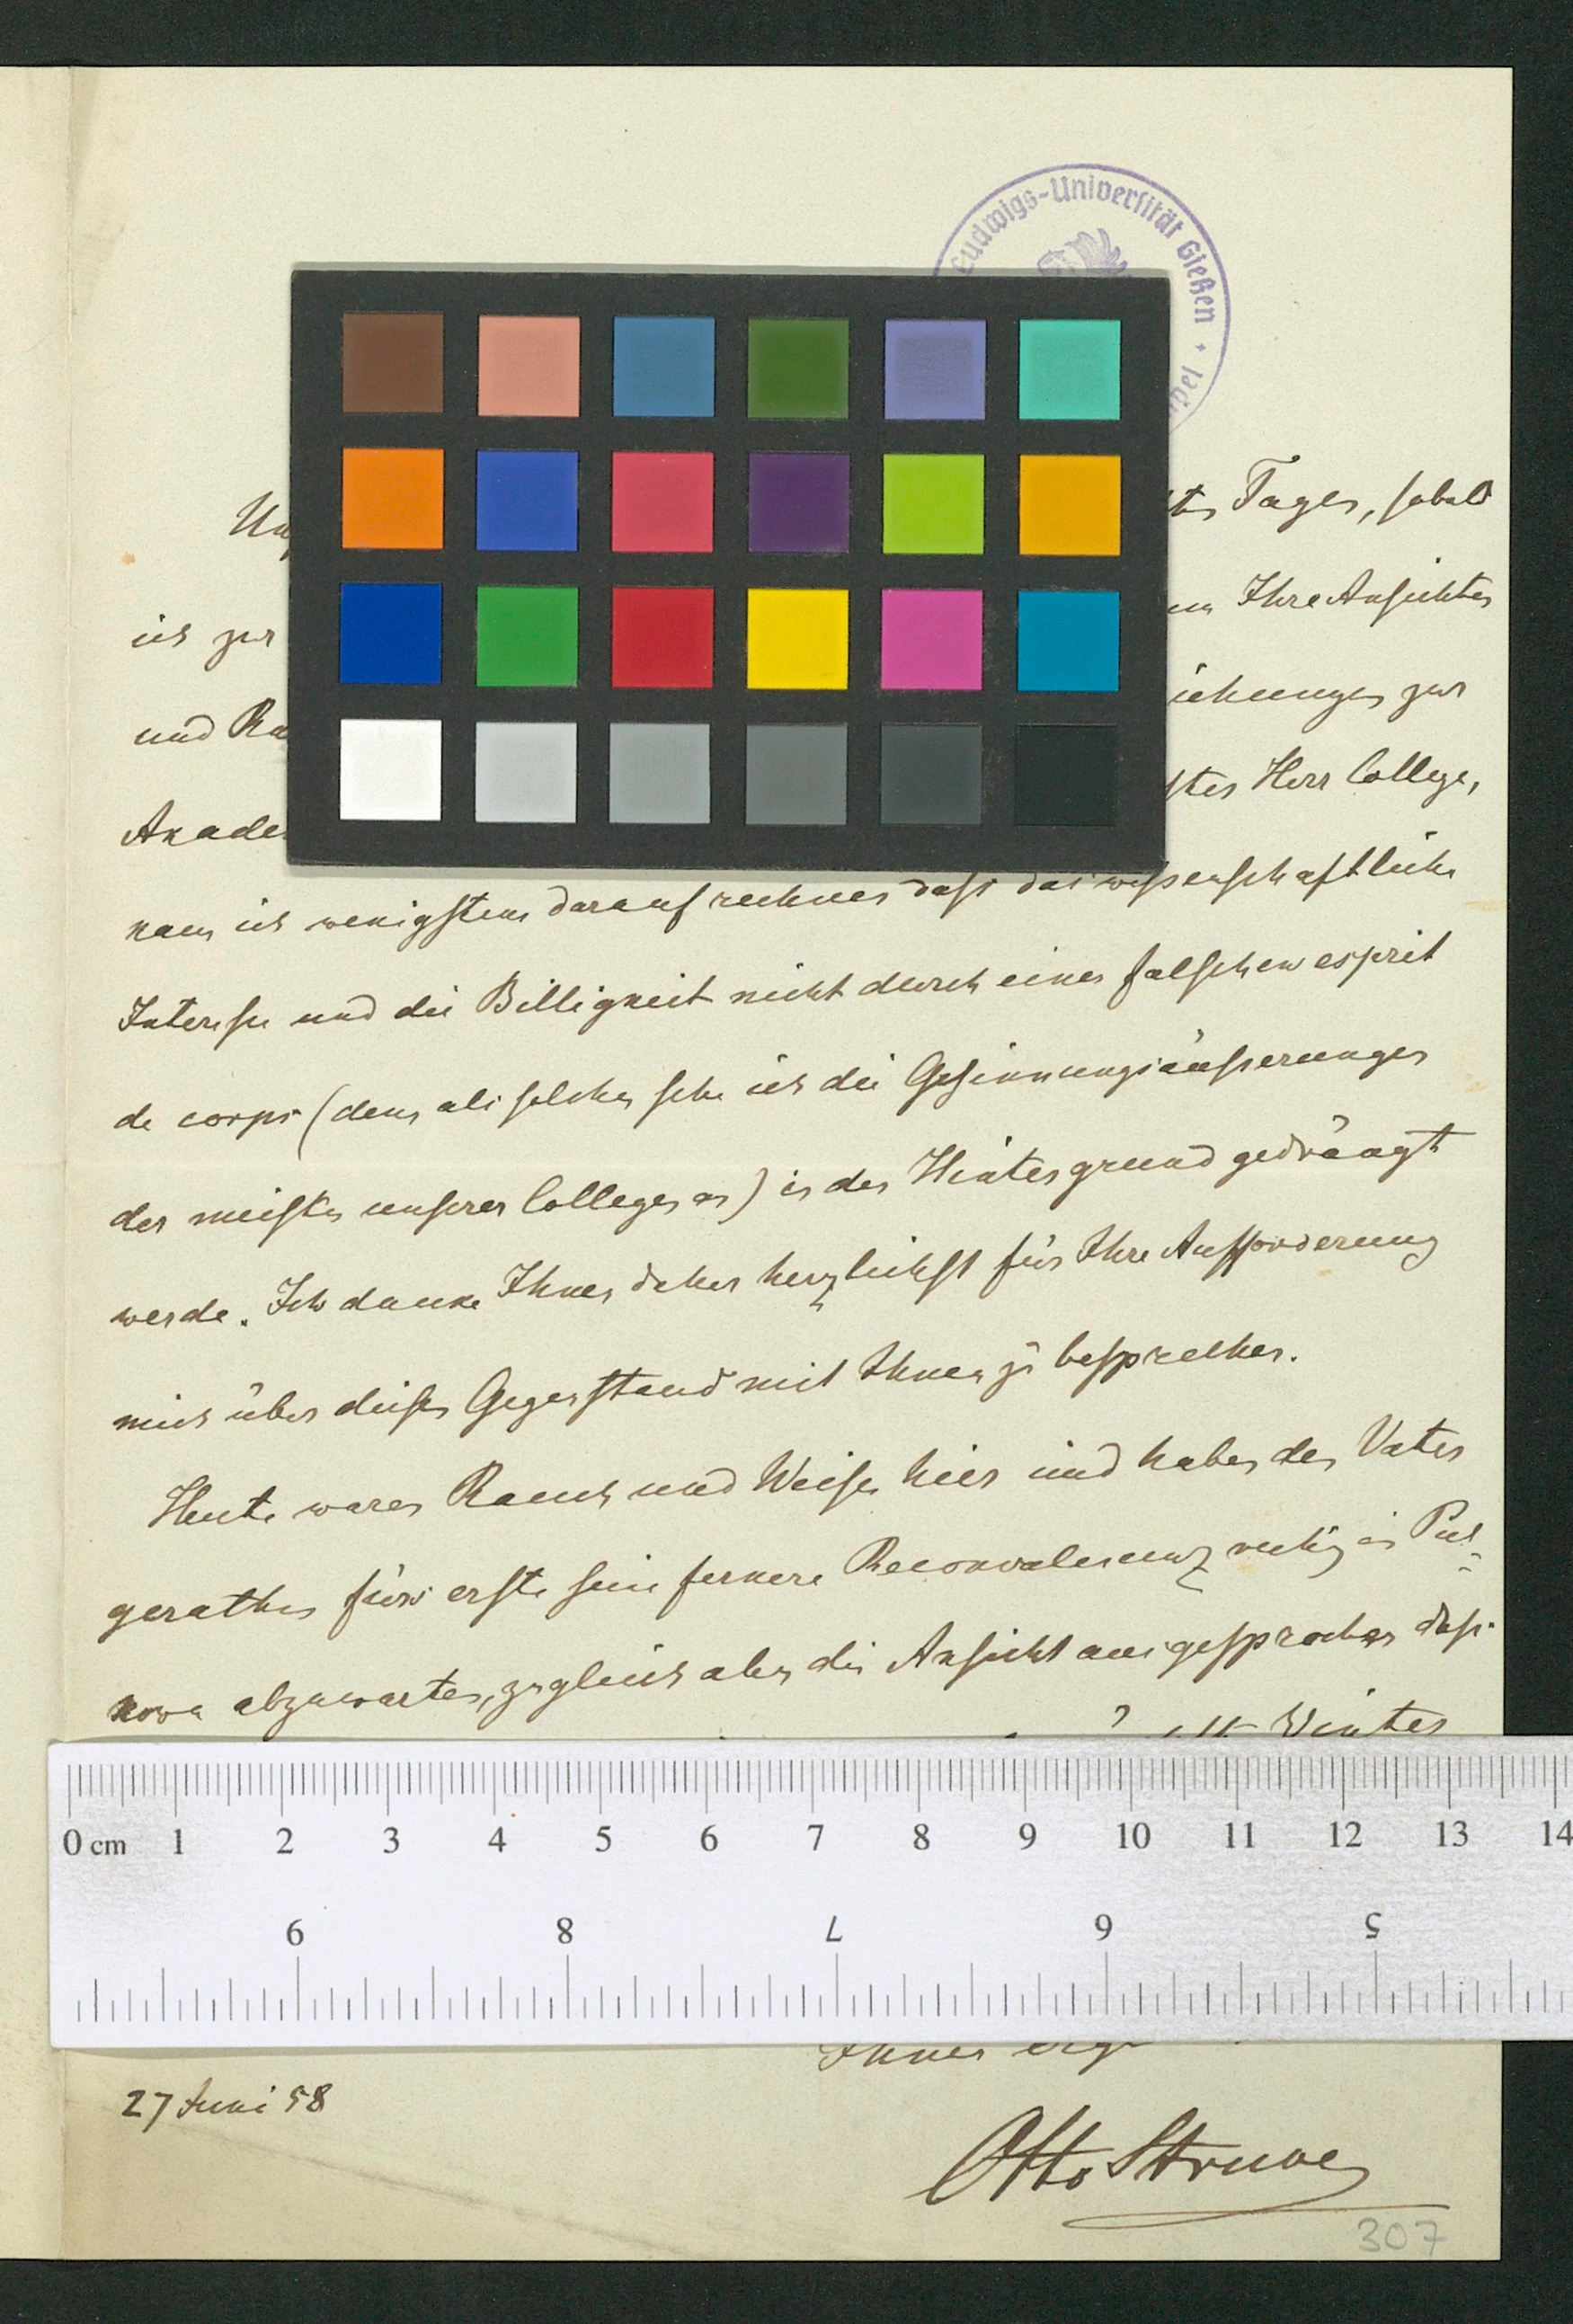 Ludwigs-Universität Gießen
Tages, sobald
ich zur
Ihre Ansichten
und
zur
Herr College,
kann ich wenigstens darauf rechnen dass das wissenschaftliche
Interesse und die Billigkeit nicht durch einen falschen esprit
de corps (denn als solchen sehe ich die Gesinnungsäusserungen
der meisten unserer Collegen an) in den Hintergrund gedrängt
werde. Ich danke Ihnen daher herzlichst für Ihre Aufforderung
mich über diesen Gegenstand mit Ihnen zu besprechen.
Heute waren Rauch und Weisse hier und haben den Vater
gerathen fürs erste seine fernere Reconvalescenz ruhig in Pul-
kowa abzuwarten, zugleich aber die Ansicht ausgesprochen dass
Winter
0 cm 1 2 3 4 5 6 7 8 9 10 11 12 13 14
9 8 7 6 5
Ihnen
27 Juni 58
Otto Struve
307